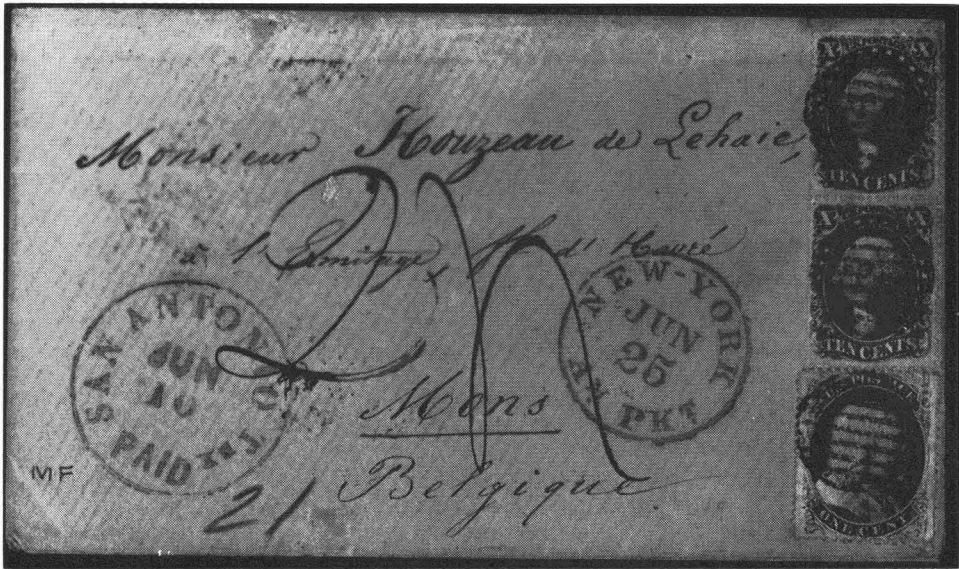 Monsieur Houzeau de Lehaie,
à l'Ermitage, d'Havré
Mons
Belgique
21
MF
SAN ANTONIO TEX
JUN
PAID
NEW-YORK
JUN
25
AM. PKT
X X
TEN CENTS
X X
TEN CENTS
ONE CENT